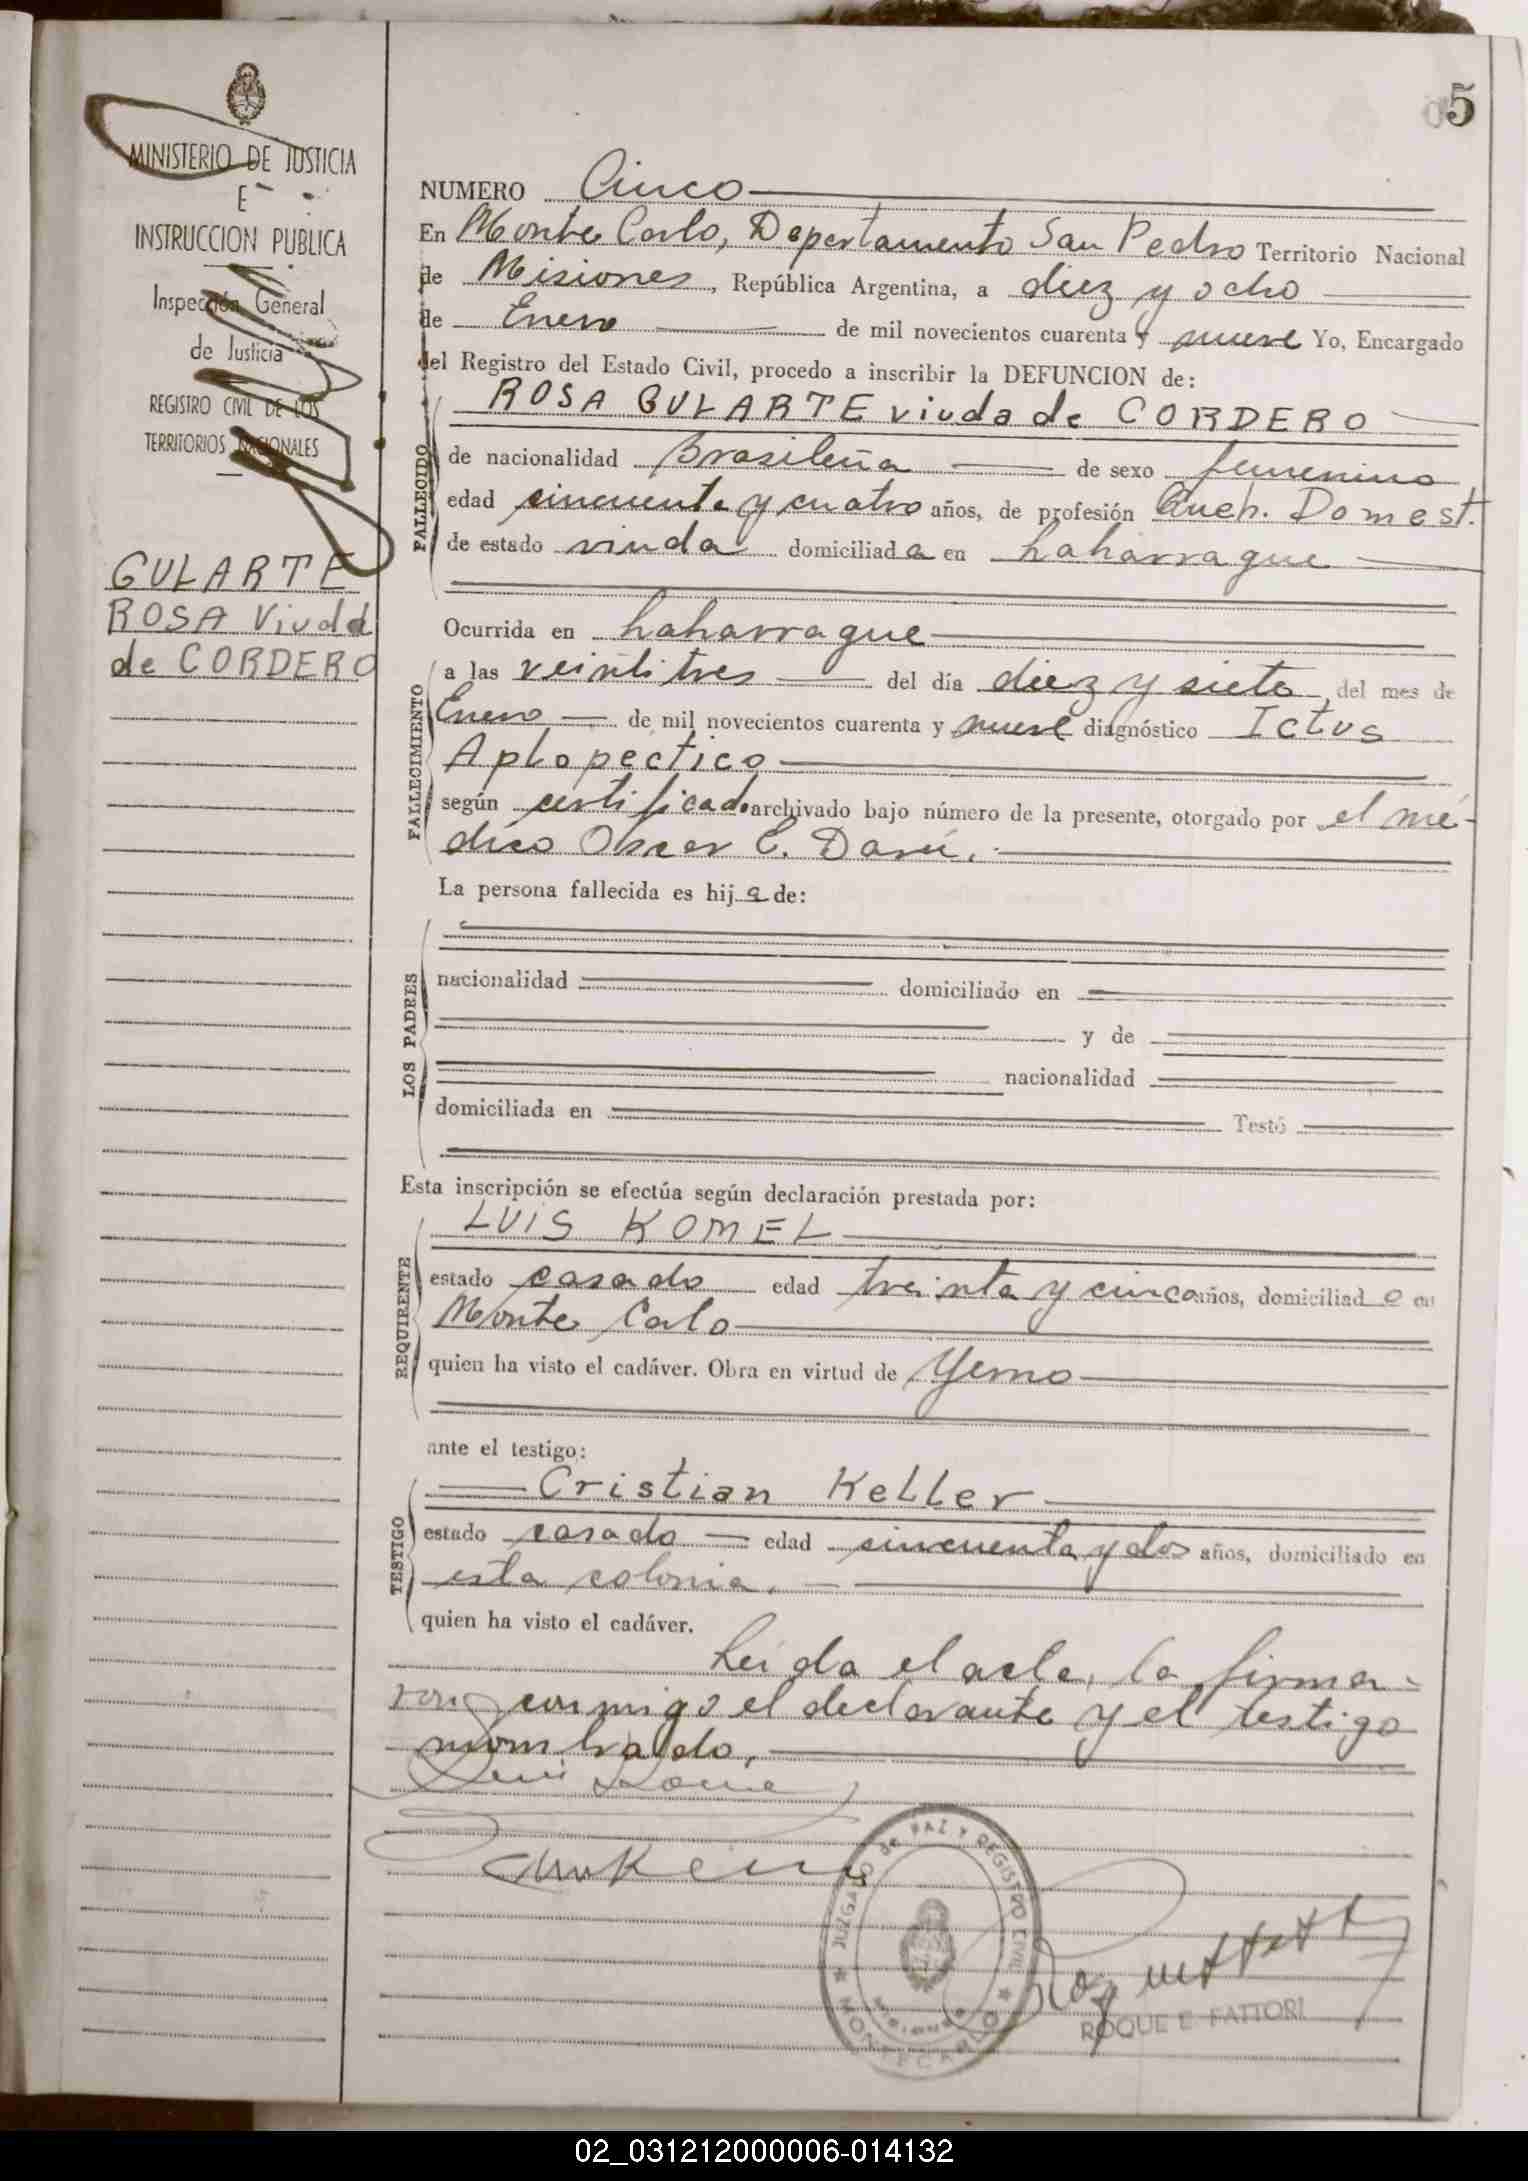 5
MINISTERIO DE JUSTICIA
E
INSTRUCCION PUBLICA
Inspección General
de Justicia
REGISTRO CIVIL DE LOS
TERRITORIOS NACIONALES
GULARTE
ROSA Viuda
de CORDERO
NUMERO Cinco
En Monte Carlo, Departamento San Pedro Territorio Nacional
de Misiones, República Argentina, a diez y ocho
de Enero de mil novecientos cuarenta y nueve Yo, Encargado
del Registro del Estado Civil, procedo a inscribir la DEFUNCION de:
FALLECIDO
ROSA GULARTE viuda de CORDERO
de nacionalidad Brasileña de sexo femenino
edad cincuenta y cuatro años, de profesión Queh. Domest.
de estado viuda domiciliada en Laharrague
Ocurrida en Laharrague
FALLECIMIENTO
a las veintitres del día diez y siete del mes de
Enero de mil novecientos cuarenta y nueve diagnóstico Ictus
Aplopectico
según certificado archivado bajo número de la presente, otorgado por el mé-
dico Oscar E. Darú.
La persona fallecida es hija de:
LOS PADRES
nacionalidad domiciliado en
y de
nacionalidad
domiciliada en Testó
Esta inscripción se efectúa según declaración prestada por:
REQUIRENTE
LUIS KOMEL
estado casado edad treinta y cinco años, domiciliado en
Monte Carlo
quien ha visto el cadáver. Obra en virtud de Yerno
ante el testigo:
TESTIGO
Cristian Keller
estado casado edad cincuenta y dos años, domiciliado en
esta colonia.
quien ha visto el cadáver.
Leida el acta, la firma-
ron conmigo el declarante y el testigo
nombrado.
JUZGADO de PAZ Y REGISTRO CIVIL
MISIONES
MONTECARLO
ROQUE E. FATTORI
02_031212000006-014132